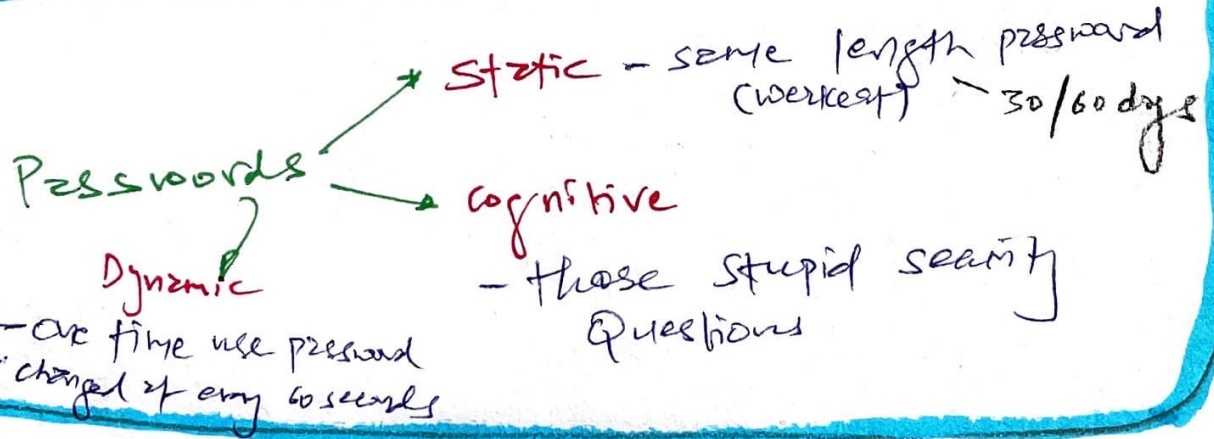 Static - same length password
(weakest) - 30/60 days
Passwords
Cognitive
- those stupid security
Questions
Dynamic
- one time use password
changed at every 60 seconds